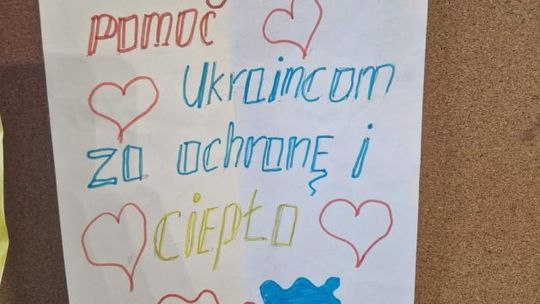 pomoć
Ukraincom
za ochronę i
CIEPŁO